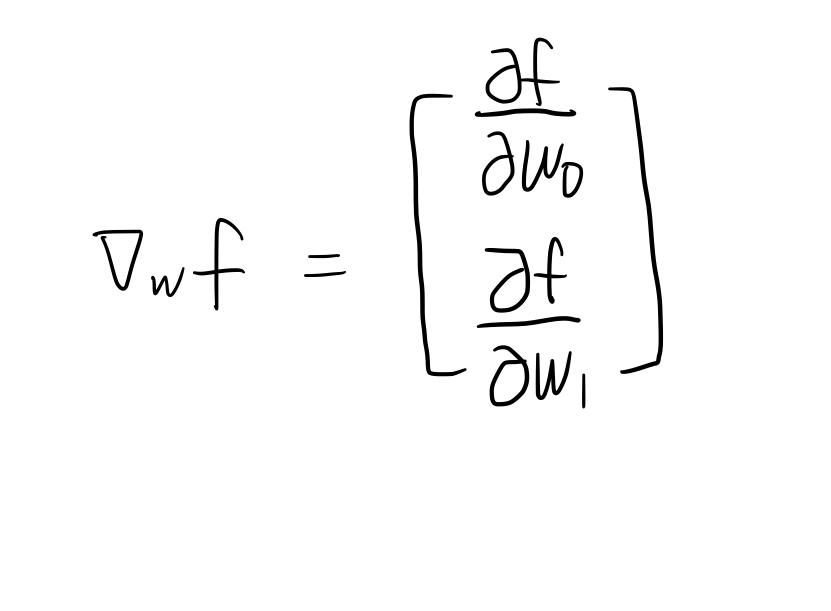 ∇_w f = [ ∂f/∂w_0
∂f/∂w_1 ]